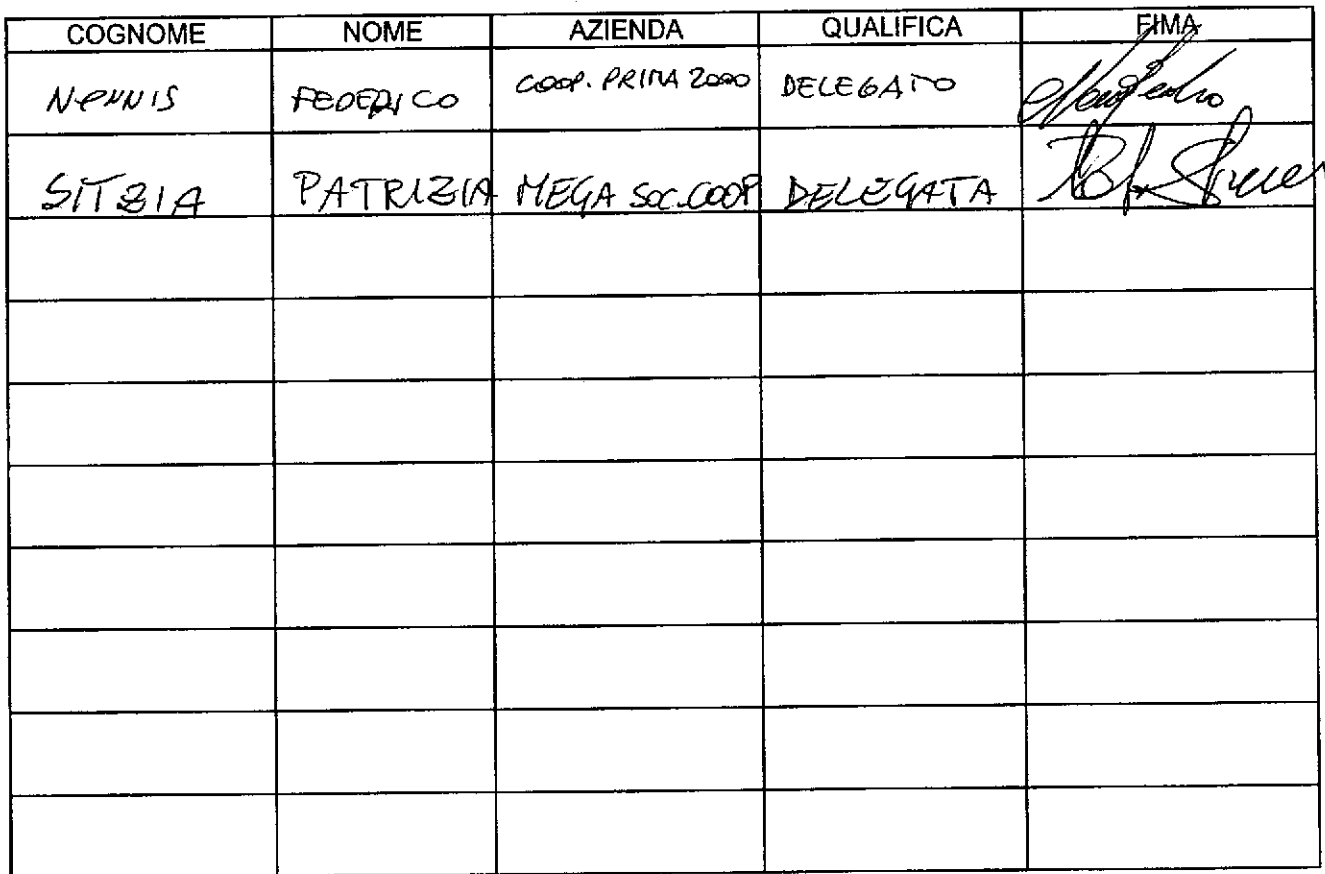 COGNOME NOME AZIENDA QUALIFICA FIMA
NENNIS FEDERICO COOP. PRIMA 2000 DELEGATO
SITZIA PATRIZIA MEGA SOC. COOP DELEGATA